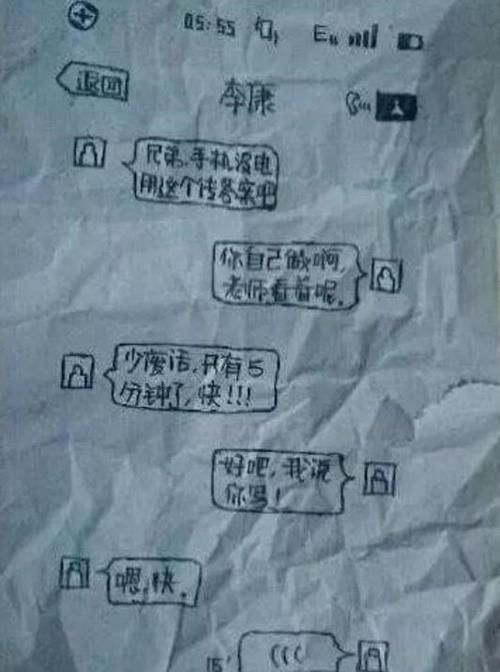 05:55 E
返回
李康
兄弟,手机没电
用这个传答案吧
你自己做啊,
老师看着呢.
少废话,只有5
分钟了,快!!!
好吧,我说
你写!
嗯,快.
15"